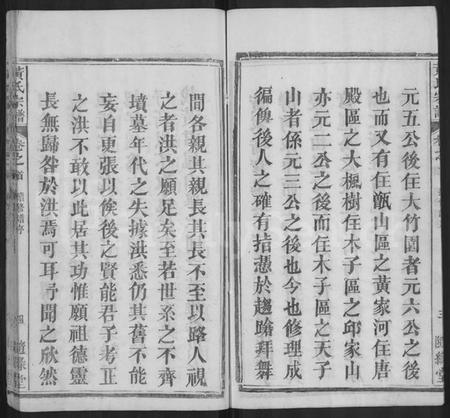 元五公後住大竹園者元六公之後
也而又有住甑山區之黃家河住唐
殿區之大楓樹住木子區之邱家山
亦元二公之後而住木子區之天子
山者係元三公之後也今也修理成
徧俾後人之確有指憑於趨蹌拜舞
間各親其親長其長不至以路人視
之者洪之願足矣至若世系之不齊
墳墓年代之失據洪悉仍其舊不能
妄自更張以俟後之賢能君子考正
之洪不敢以此居其功惟願祖德靈
長無歸咎於洪焉可耳予聞之欣然
黃氏宗譜
卷之首
續修譜序